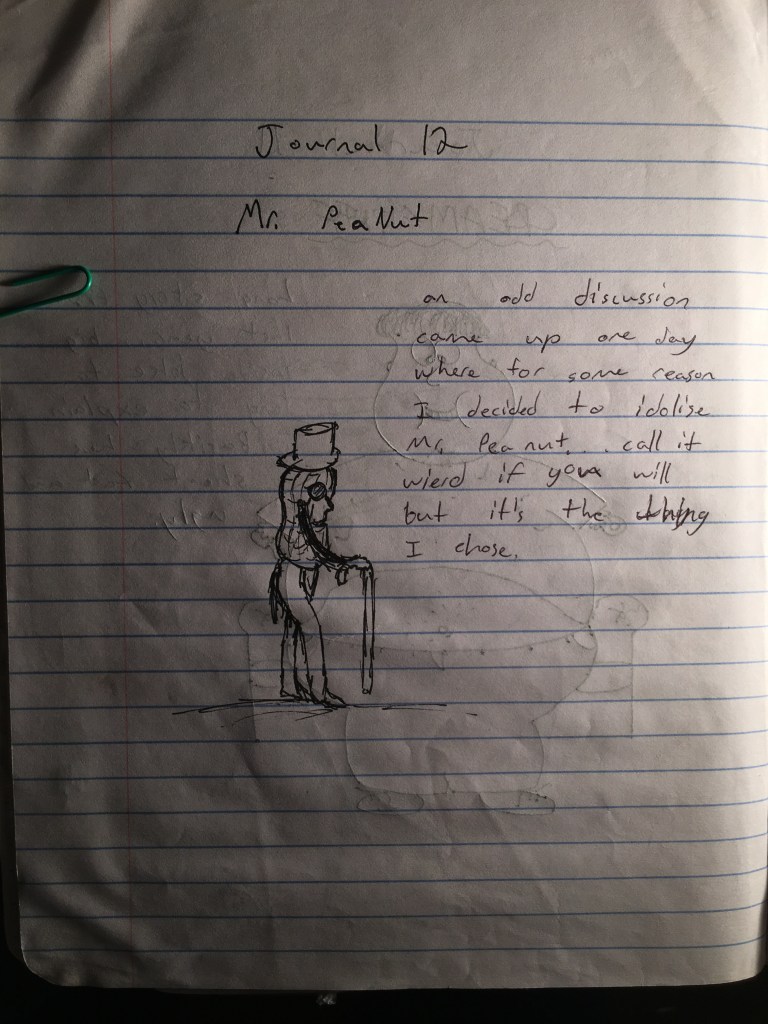 Journal 12
Mr. PeaNut
an odd discussion
came up one day
where for some reason
I decided to idolise
Mr. Peanut... call it
wierd if you will
but it's the thing
I chose.